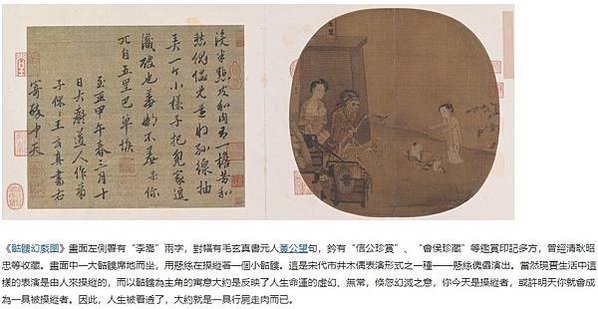 没半點皮和肉有一擔苦和
愁傀儡兒還將絲線抽
弄一个小樣子把冤家逗
識破也羞那不羞呆你
兀自五里巴單堠
至正甲午春三月十
日大癡道人作弟
子休休王玄真書右
寄醉中天
《骷髏幻戲圖》畫面左側署有“李嵩”兩字，對幅有毛玄真書元人黃公望句，鈐有“信公珍賞”、“會侯珍藏”等鑑賞印記多方，曾經清耿昭
忠等收藏。畫面中一大骷髏席地而坐，用懸絲在操縱著一個小骷髏。這是宋代市井木偶表演形式之一種——懸絲傀儡演出。當然現實生活中這
樣的表演是由人來操縱的，而以骷髏為主角的寓意大約是反映了人生命運的虛幻、無常，倏忽幻滅之意，你今天是操縱者，或許明天你就會成
為一具被操縱者。因此，人生被看透了，大約就是一具行屍走肉而已。